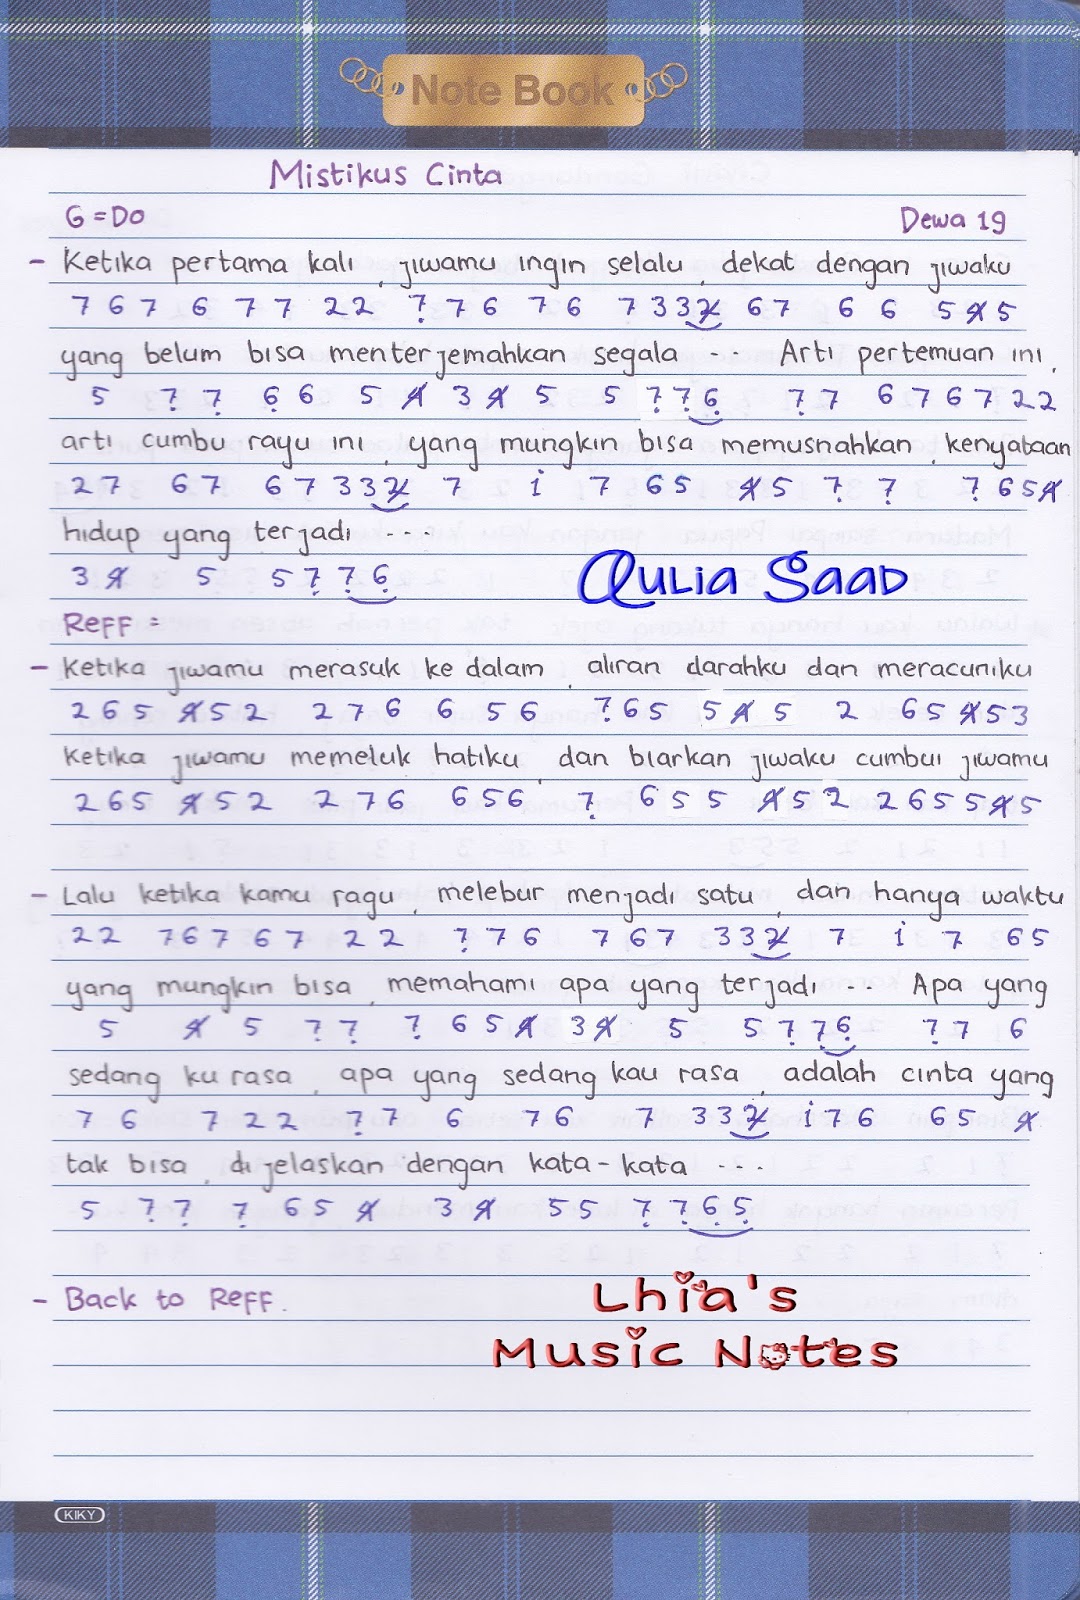 Note Book
Mistikus Cinta
G = Do Dewa 19
- Ketika pertama kali, jiwamu ingin selalu, dekat dengan jiwaku
7 6 7 6 7 7 2 2 7̣ 7 6 7 6 7 3 3 2̸ 6 7 6 6 5 4̸ 5
yang belum bisa menterjemahkan segala --- Arti pertemuan ini,
5 7̣ 7̣ 6̣ 6 5 4̸ 3 4̸ 5 5 7̣ 7̣ 6̣ 7̣ 7 6 7 6 7 2 2
arti cumbu rayu ini, yang mungkin bisa memusnahkan, kenyataan
2 7 6 7 6 7 3 3 2̸ 7 i 7 6 5 4̸ 5 7̣ 7̣ 7̣ 6 5 4̸
hidup yang terjadi ---
3 4̸ 5 5 7̣ 7̣ 6̣
Qulia Saad
Reff :
- Ketika jiwamu merasuk ke dalam, aliran darahku dan meracuniku
2 6 5 4̸ 5 2 2 7 6 6 5 6 7̣ 6 5 5 4̸ 5 2 6 5 4̸ 5 3
Ketika jiwamu memeluk hatiku, dan biarkan jiwaku cumbui jiwamu
2 6 5 4̸ 5 2 2 7 6 6 5 6 7̣ 6 5 5 4̸ 5 2 2 6 5 5 4̸ 5
- Lalu ketika kamu ragu, melebur menjadi satu, dan hanya waktu
2 2 7 6 7 6 7 2 2 7̣ 7 6 7 6 7 3 3 2̸ 7 i 7 6 5
yang mungkin bisa, memahami apa yang terjadi --- Apa yang
5 4̸ 5 7̣ 7̣ 7̣ 6 5 4̸ 3 4̸ 5 5 7̣ 7̣ 6̣ 7̣ 7 6
sedang ku rasa, apa yang sedang kau rasa, adalah cinta yang
7 6 7 2 2 7̣ 7 6 7 6 7 3 3 2̸ i 7 6 6 5 4̸
tak bisa, dijelaskan dengan kata-kata ---
5 7̣ 7̣ 7̣ 6 5 4̸ 3 4̸ 5 5 7̣ 7̣ 6̣ 5̣
- Back to Reff.
Lhia's
Music Notes
KIKY